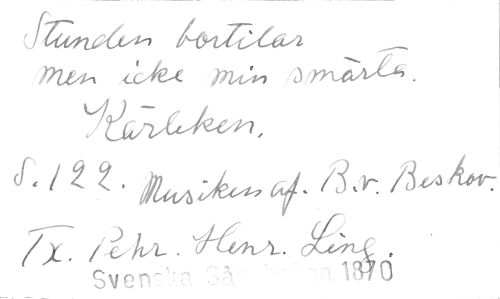 Stunden bortilar
men icke min smärta.
Kärleken.
S. 122. Musiken af. B. v. Beskov.
Tx. Pehr. Henr. Ling.
Svenska 1870